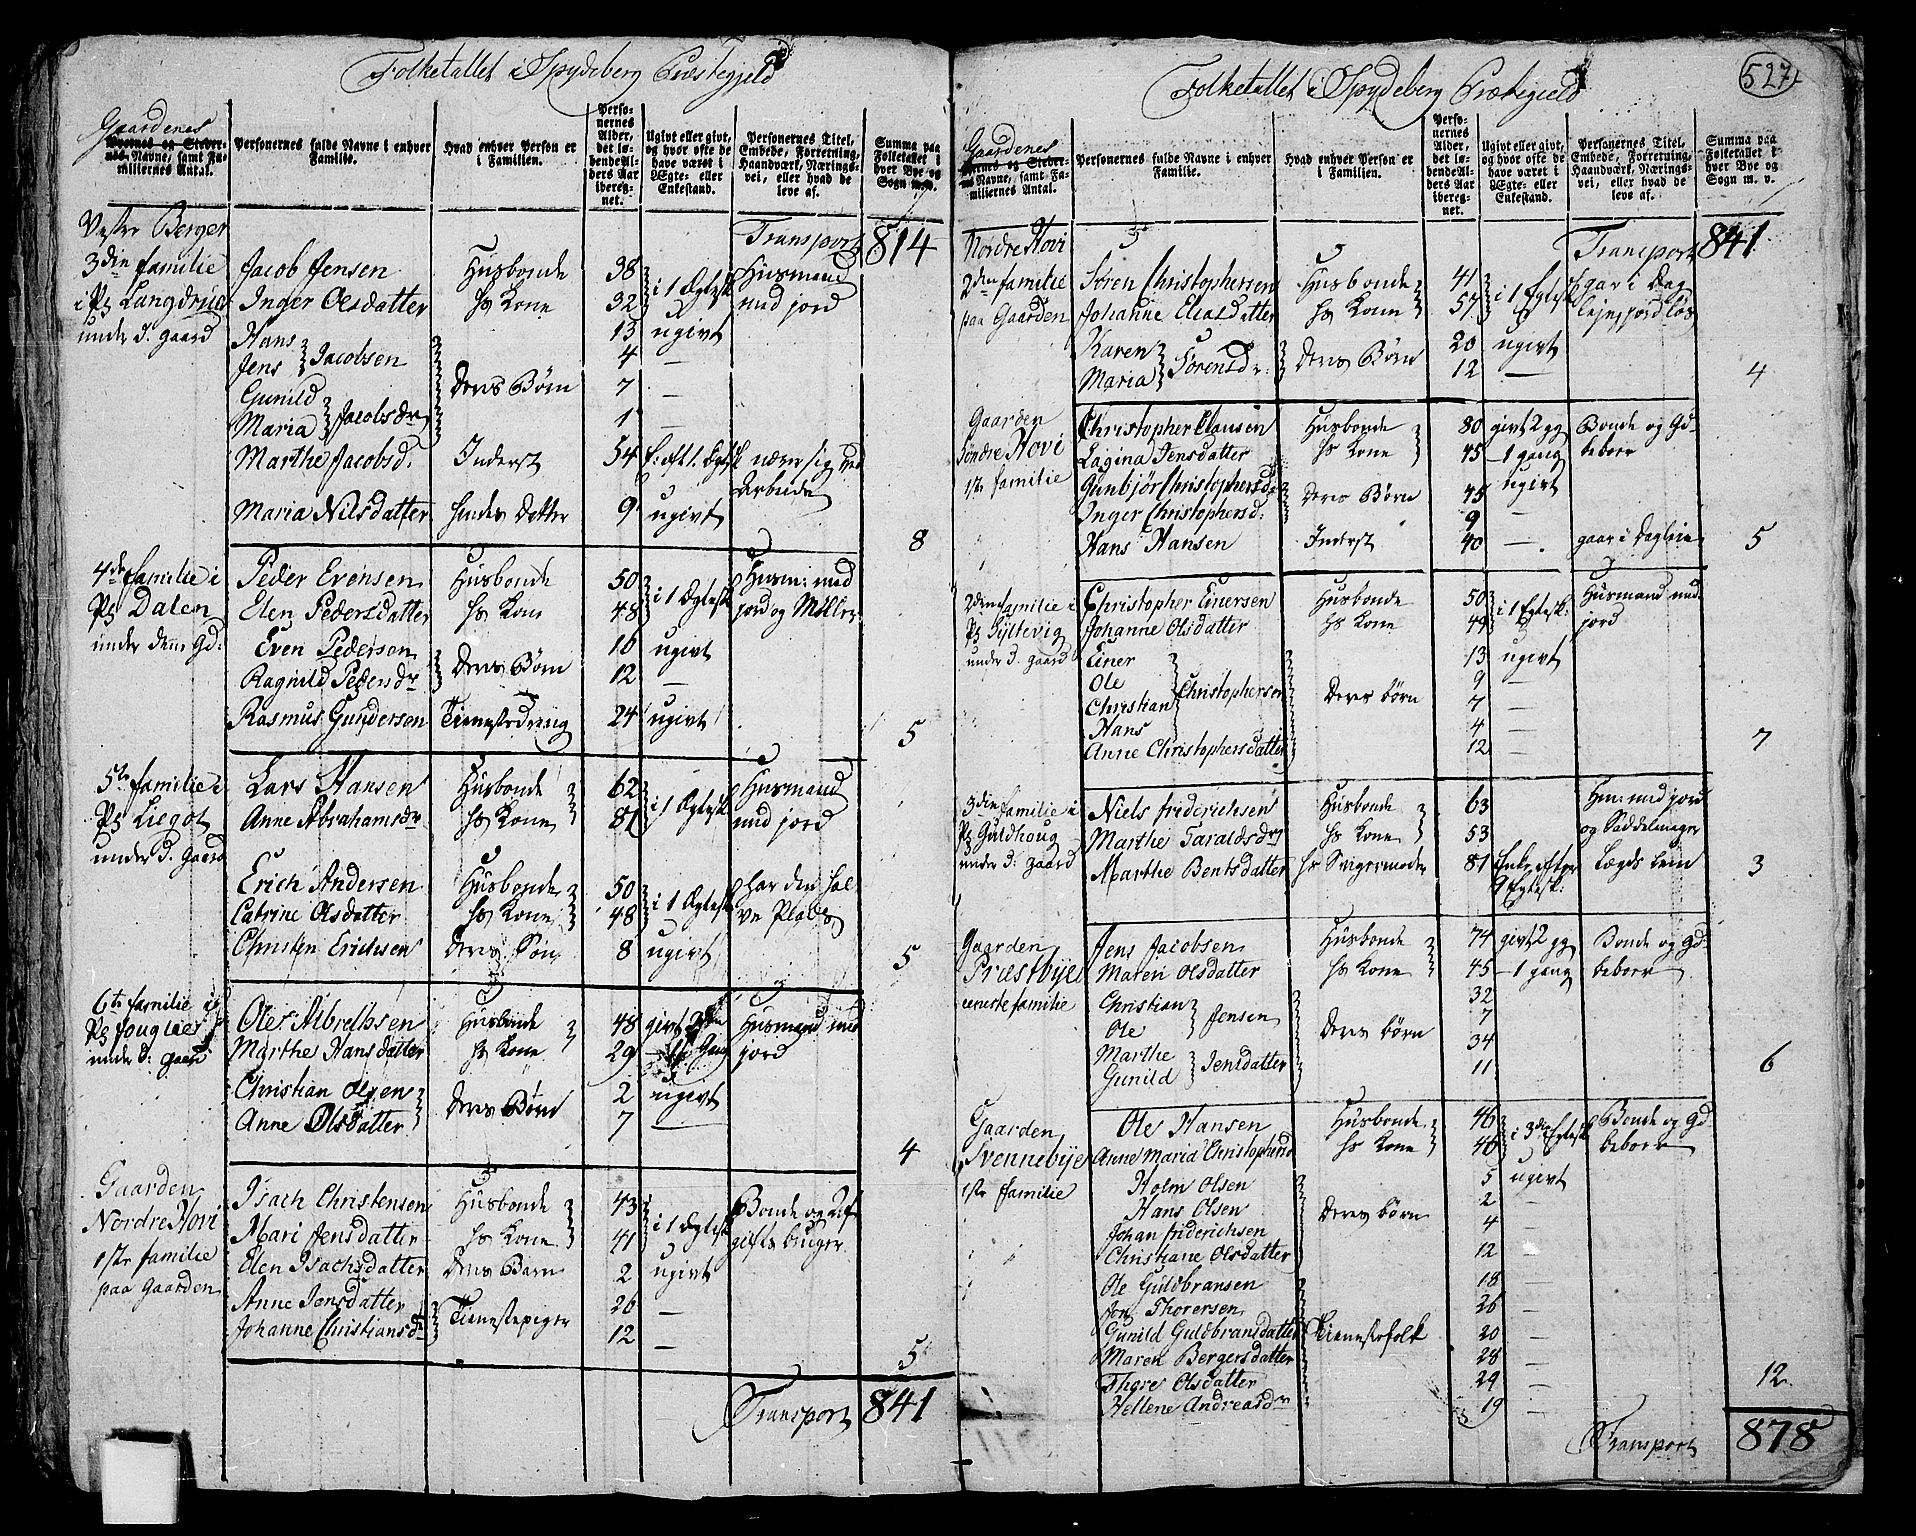 Folketallet i Spydeberg Præstegjeld
Gaardenes
Byernes og Stedernes Navne, samt Familiernes Antal.
Personernes fulde Navne i enhver Familie.
Hvad enhver Person er i Familien.
Personernes Alder, det løbende Alders Aar iberegnet.
Ugivt eller givt, og hvor ofte de have været i Ægte- eller Enkestand.
Personernes Titel, Embede, Forretning, Haandværk, Næringsvei, eller hvad de leve af.
Summa paa Folketallet i hver Bye og Sogn m. v.
Vestre Berger Transport 814
3die familie Jacob Jensen Husbonde 38 i 1 Ægtesk Husmand
i Ps Langdrud Inger Olsdatter Hs Kone 32 med jord
under d: gaard Hans 13 ugivt
Jens } Jacobsen 4 —
Gunild Deres Børn 7 —
Maria } Jacobsdr 1 —
Marthe Jacobsd. Inderst 54 E: eft 1. Ægtesk nærer sig ved
Arbeide
Maria Nilsdatter hendes Datter 9 ugivt
8
4de familie i Peder Evensen Husbonde 50 i 1 Ægtesk Husm: med
Ps Dalen Elen Pedersdatter Hs Kone 48 jord og Møller
under denne Gd: Even Pedersen 16 ugivt
Ragnild Pedersdr Deres Børn 12 —
Rasmus Gundersen Tienestedreng 24 ugivt
5
5te familie i Lars Hansen Husbonde 62 i 1 Ægtesk Husmand
Ps Liegot Anne Abrahamsdr Hs Kone 81 med jord
under d. gaard
Erich Andersen Husbonde 50 i 1 Ægtesk har den hal-
Catrine Olsdatter Hs Kone 48 ve Plads
Christen Erichsen Deres Søn 8 ugivt
5
6te familie i Ole Albrethsen Husbonde 48 givt 2den Husmand med
Marthe Hansdatter Hs Kone 29 Gang jord
under d: gaard
Christian Olsen 2 ugivt
Anne Olsdatter Deres Børn 7 —
4
Gaarden Isach Christensen Husbonde 43 i 1 Ægtesk Bonde og Af-
Nordre Hovi Mari Jensdatter Hs Kone 41 gifts bruger
1ste familie Elen Isachsdatter Deres Barn 2 ugivt
paa Gaarden Anne Jensdatter Tienestepiger 26 —
Johanne Christiansdr 12 —
5
Transport 841
527
Folketallet i Spydeberg Præstegield
Gaardenes
Byernes og Stedernes Navne, samt Familiernes Antal.
Personernes fulde Navne i enhver Familie.
Hvad enhver Person er i Familien.
Personernes Alder, det løbende Alders Aar iberegnet.
Ugivt eller givt, og hvor ofte de have været i Ægte- eller Enkestand.
Personernes Titel, Embede, Forretning, Haandværk, Næringsvei, eller hvad de leve af.
Summa paa Folketallet i hver Bye og Sogn m. v.
Nordre Hovi Transport 841
2den familie Søren Christophersen Husbonde 41 i 1 Egtesk gaar i Dag-
paa Gaarden Johanne Eliasdatter Hs Kone 57 leje, jordløs
Karen 20 ugivt
Maria } Sørensdr: Deres Børn 12 —
4
Gaarden Christopher Clausen Husbonde 80 givt 2 gg Bonde og Gd-
Søndre Hovi Lagina Jensdatter Hs Kone 45 — 1 gang beboer
1ste familie Gunbjør Christophersdr Deres Børn 45 ugivt
Inger Christophersd: 9 —
Hans Hansen Inderst 40 — gaar i Dagleie
5
2den familie i Christopher Einersen Husbonde 50 i 1 Egtesk: Husmand med
Ps Syltevig Johanne Olsdatter Hs Kone 49 jord
under d. gaard Einer 13 ugivt
Ole 9 —
Christian } Christophersen Deres børn 7 —
Hans 4 —
Anne Christophersdatter 12 —
7
3die familie i Niels friderichsen Husbonde 63 Hm: med jord
Ps Guldhoug Marthe Taraldsdr Hs Kone 53 og Saddelmager
under d: gaard Marthe Bentsdatter Hs Svigermoder 81 Enke efter Lægds lem
Egtesk:
3
Gaarden Jens Jacobsen Husbonde 74 givt 2 gg Bonde og Gd-
Præstbye Maren Olsdatter Hs Kone 45 — 1 gang beboer
eeneste familie Christian 32
Ole } Jensen Deres børn 7
Marthe 34
Gunild } Jensdatter 11
6
Gaarden Ole Hansen Husbonde 46 i 3die Egtesk Bonde og Gd
Svennebye Anne Maria Christophersd Hs Kone 46 beboer
1ste familie Holm Olsen 5 ugivt
Hans Olsen Deres børn 2 —
Johan friderichsen 4 —
Christiane Olsdatter 12 —
Ole Guldbransen 18 —
Jon Thorersen 26 —
Gunild Guldbransdatter Tienestefolk 20 —
Maren Bergersdatter 28 —
Thore Olsdatter 29 —
Hellene Andreasdr 19 —
12
Transport 878